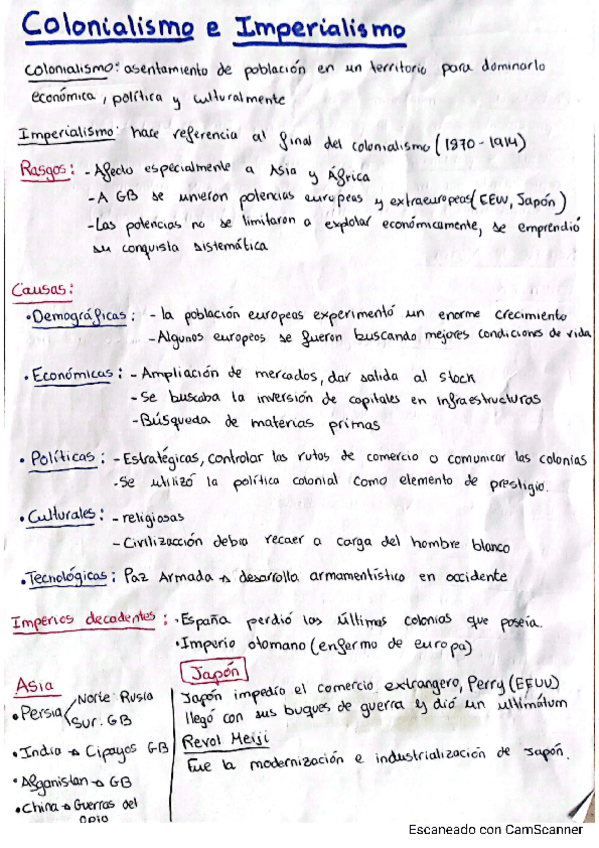 Colonialismo e Imperialismo
Colonialismo: asentamiento de población en un territorio para dominarlo
económica, política y culturalmente
Imperialismo: hace referencia al final del colonialismo (1870-1914)
Rasgos: - Afecto especialmente a Asia y África
- A GB se unieron potencias europeas y extraeuropeas (EEUU, Japón)
- Las potencias no se limitaron a explotar económicamente, se emprendió
su conquista sistemática
Causas:
• Demográficas: - la población europeas experimentó un enorme crecimiento
- Algunos europeos se fueron buscando mejores condiciones de vida
• Económicas: - Ampliación de mercados, dar salida al stock
- Se buscaba la inversión de capitales en infraestructuras
- Búsqueda de materias primas
• Políticas: - Estratégicas, controlar las rutas de comercio o comunicar las colonias
- Se utilizó la política colonial como elemento de prestigio.
• Culturales: - religiosas
- Civilización debía recaer a carga del hombre blanco
• Tecnológicas: Paz Armada → desarrollo armamentístico en occidente
Imperios decadentes: • España perdió las últimas colonias que poseía.
• Imperio otomano (enfermo de europa)
Asia
• Persia < Norte: Rusia
Sur: GB
• India → Cipayos GB
• Afganistan → GB
• China → Guerras del
Opio
Japón
Japón impedío el comercio extrangero, Perry (EEUU)
llegó con sus buques de guerra y dió un ultimátum
Revol Meiji
Fue la modernización e industrialización de Japón.
Escaneado con CamScanner